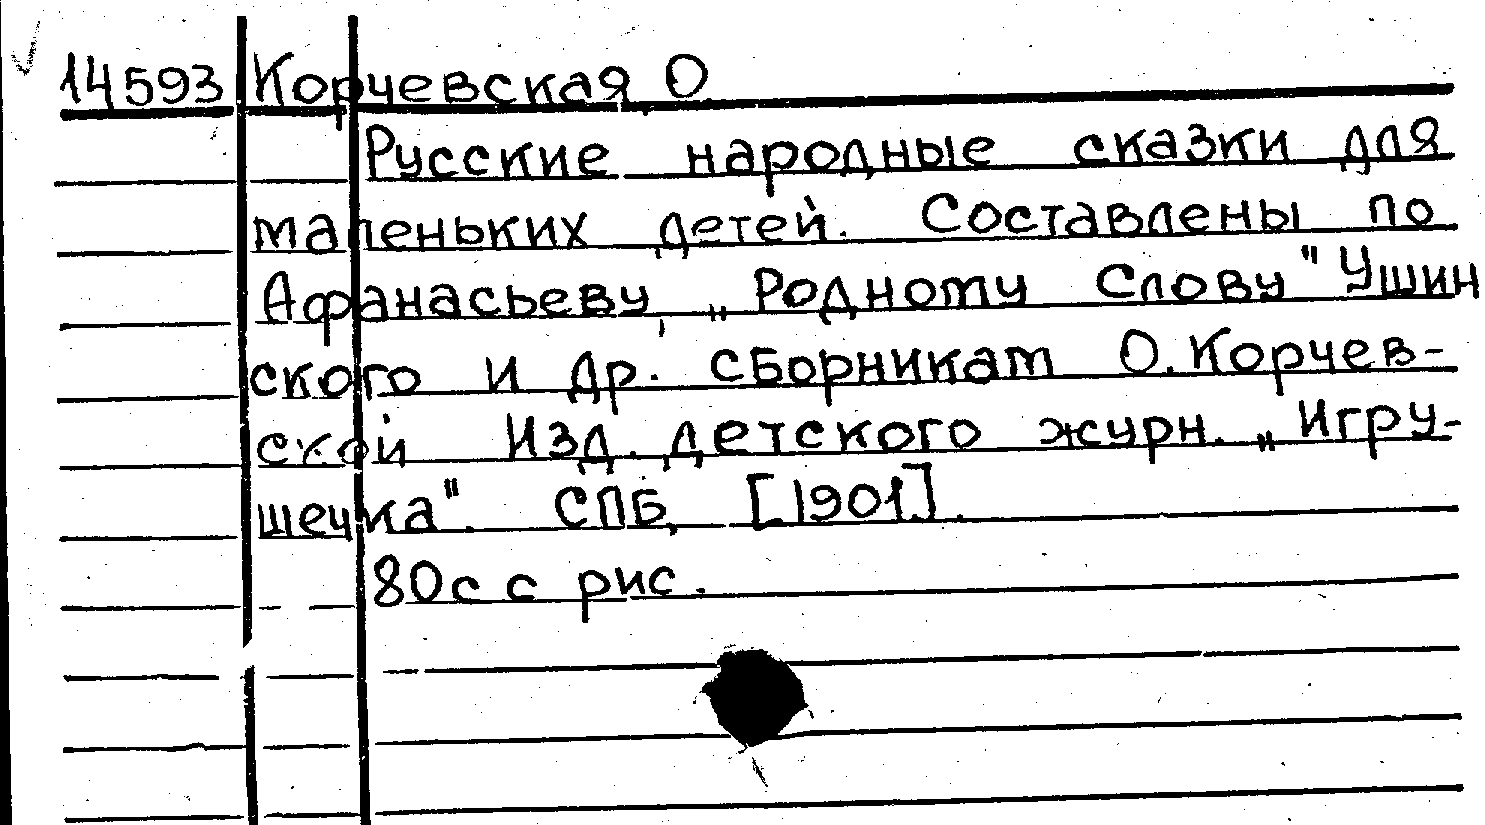 14593 Корчевская, О
Русские народные сказки для
маленьких детей. Составлены по
Афанасьеву, „Родному Слову" Ушин
ского и др. сборникам О. Корчев-
ской Изд. детского журн. „Игру-
шечка". СПБ, [1901].
80с с рис.